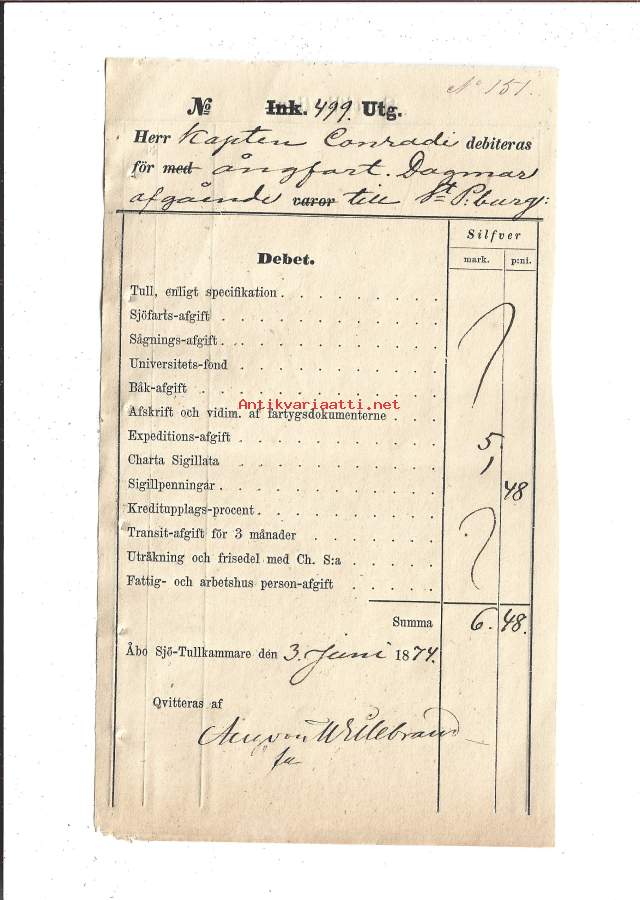 No 151.
№ Ink. 499. Utg.
Herr Kapten Conradi debiteras
för med ångfart. Dagmar
afgående varor till St P:burg:
Silfver
Debet. mark. p:ni.
Tull, enligt specifikation
Sjöfarts-afgift
Sågnings-afgift
Universitets-fond
Båk-afgift
Antikvariaatti.net
Afskrift och vidim. af fartygsdokumenterne
Expeditions-afgift 5.
Charta Sigillata 1
Sigillpenningar 48
Kreditupplags-procent
Transit-afgift för 3 månader
Uträkning och frisedel med Ch. S:a
Fattig- och arbetshus person-afgift
Summa 6. 48.
Åbo Sjö-Tullkammare den 3. Juni 1874.
Qvitteras af
Aug von Willebrand